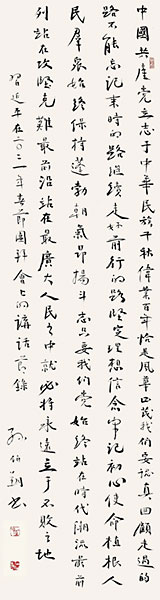 中國共產党立志于中华民族千秋偉業百年恰是風華正茂我们要認真回顧走過的
路不能忘记来时的路继续走好前行的路坚定理想信念牢记初心使命植根人
民群衆始终保持蓬勃朝气昂揚斗志只要我们党始终站在时代潮流最前
列站在攻坚克难最前沿站在最廣大人民之中就必将永遠立于不败之地
習近平在二〇二一年春節團拜会上的講話節錄
孙伯翔书